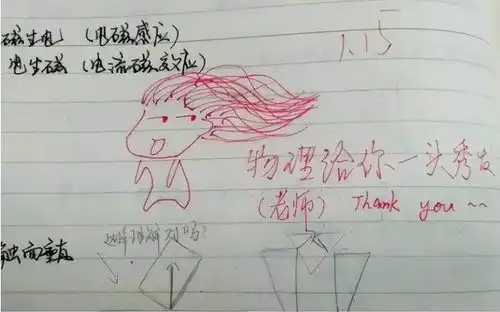 磁生电 (电磁感应)
1.15
电生磁 (电流磁效应)
物理给你一头秀发
(老师) Thank you ~~
这样理解对吗?
触面垂直